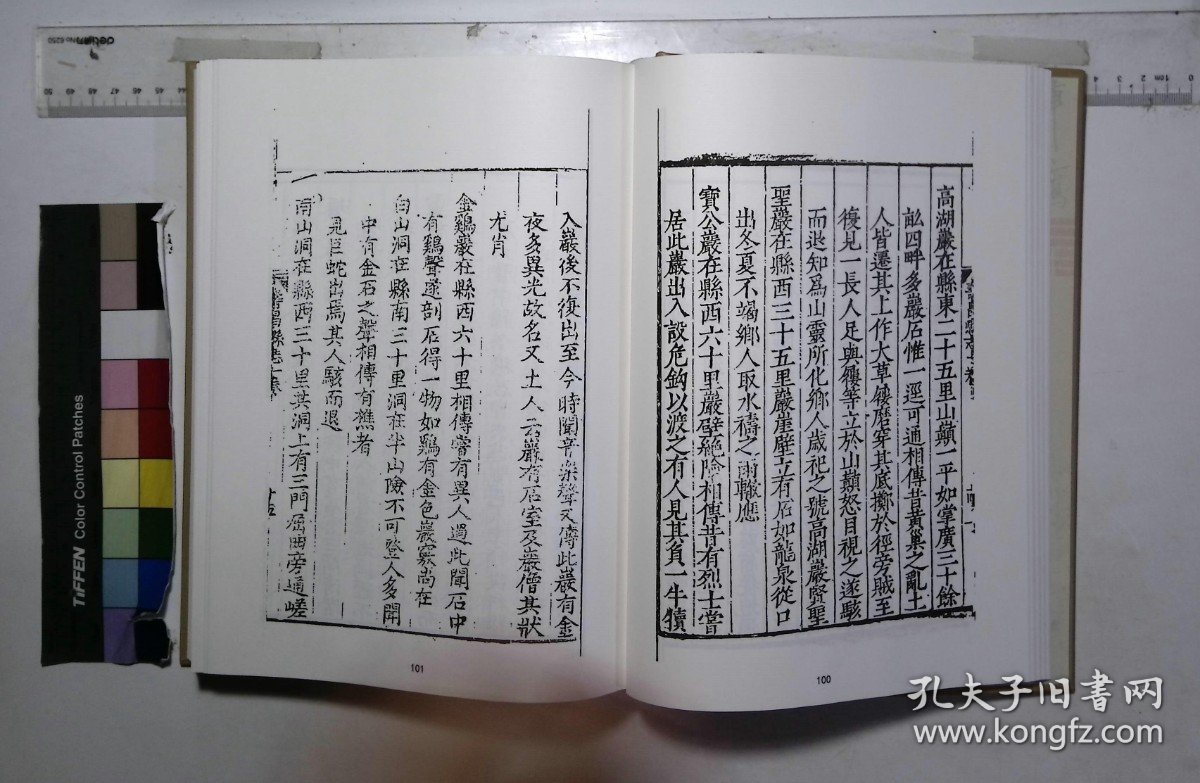 高湖巖在縣東二十五里山巔一平如掌廣三十餘
畝四畔多巖石惟一徑可通相傳昔黃巢之亂土
人皆遷其上作大草鞵磨穿其底擲於徑旁賊至
復見一長人足與鞵等立於山巔怒目視之遂駭
而退知爲山靈所化鄉人歲祀之號高湖巖賢聖
聖巖在縣西三十五里巖崖壁立有石如龍泉從口
出冬夏不竭鄉人取水禱之雨輒應
寶公巖在縣西六十里巖壁絕險相傳昔有烈士嘗
居此巖出入設危鈎以渡之有人見其負一牛犢
100
入巖後不復出至今時聞音樂聲又傳此巖有金
夜多異光故名又土人云巖有石室及巖僧其狀
尤肖
金鷄巖在縣西六十里相傳嘗有異人過此聞石中
有鷄聲遂剖石得一物如鷄有金色巖竅尚在
白洞在縣南三十里洞在半山險不可登人多聞
中有金石之聲相傳有樵者
見巨蛇出焉其人駭而退
南山洞在縣西三十里其洞上有三門屈曲旁通嵯
101
TIFFEN Color Control Patches
deli No 6250
孔夫子旧书网
www.kongfz.com